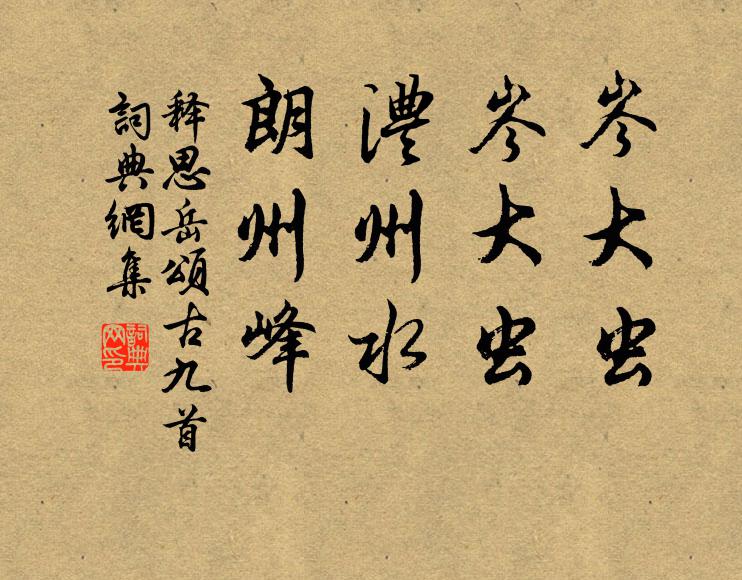 岑大虫
岑大虫
澧州水
朗州峰
释思岳頌古九首
詞典網集
詞典
网印